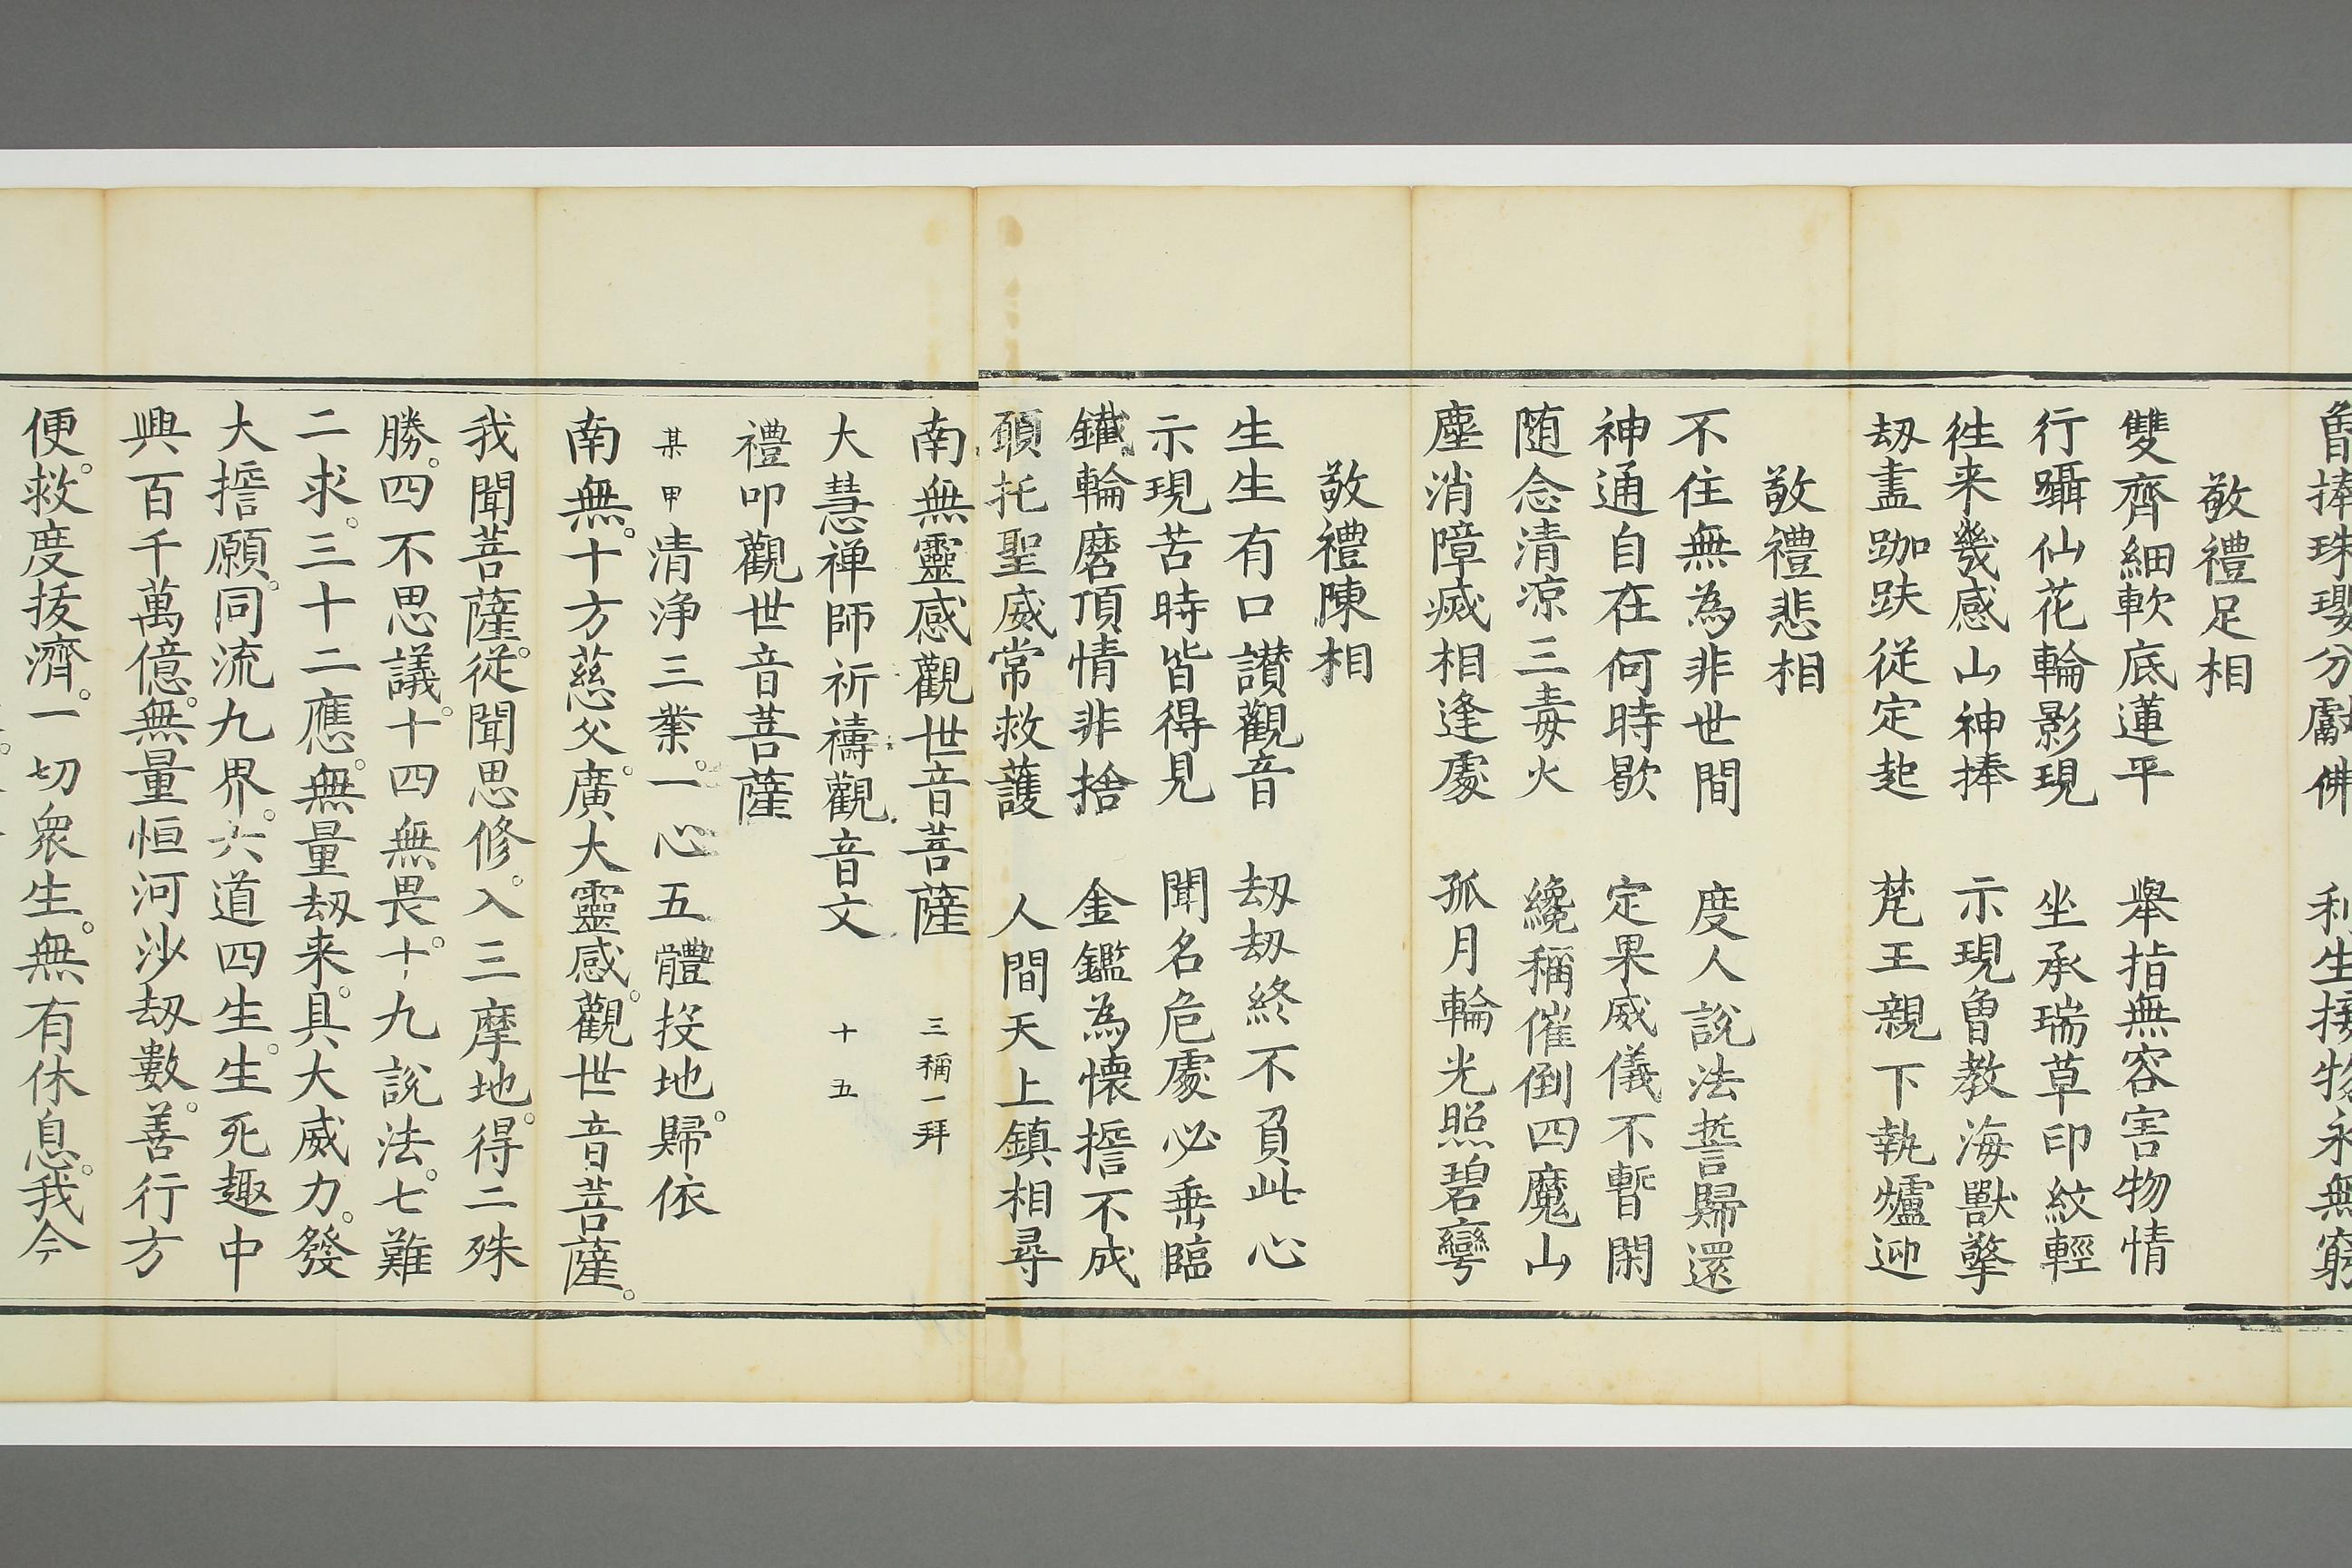 捧珠瓔分獻佛　利生接物永無窮
敬禮足相
雙齊細軟底蓮平　舉指無容害物情
行躡仙花輪影現　坐承瑞草印紋輕
徃来幾感山神捧　示現曾教海獸擎
刼盡跏趺從定起　梵王親下執爐迎
敬禮悲相
不住無為非世間　度人說法誓歸還
神通自在何時歇　定果威儀不暫閑
随念清凉三毒火　纔稱催倒四魔山
塵消障滅相逢處　孤月輪光照碧彎
敬禮陳相
生生有口讃觀音　刼刼終不負此心
示現苦時皆得見　聞名危處必垂臨
鐵輪磨頂情非捨　金鑑為懷擔不成
頋托聖威常救護　人間天上鎮相尋
南無靈感觀世音菩薩　三稱一拜
大慧禅師祈禱觀音文　十五
禮叩觀世音菩薩
某甲清浄三業。一心五體投地。歸依
南無。十方慈父。廣大靈感。觀世音菩薩。
我聞菩薩。從聞思修。入三摩地。得二殊
勝。四不思議。十四無畏。十九說法。七難
二求。三十二應。無量刼来。具大威力。發
大擔願。同流九界。六道四生。生死趣中
興百千萬億。無量恒河沙刼數。善行方
便。救度拔濟。一切衆生。無有休息。我今